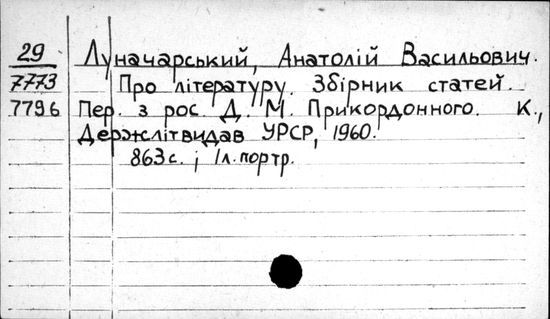 29 Луначарський, Анатолій Васильович.
7773 Про літературу. Збірник статей.
7796 Пер. з рос. Д. М. Прикордонного. К.,
Держлітвидав УРСР, 1960.
863 с. ; 1 л. портр.